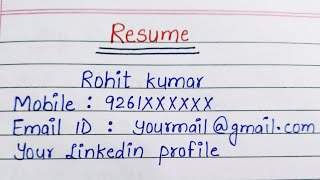 Resume
Rohit kumar
Mobile : 9261XXXXXX
Email ID : yourmail@gmail.com
Your Linkedin profile